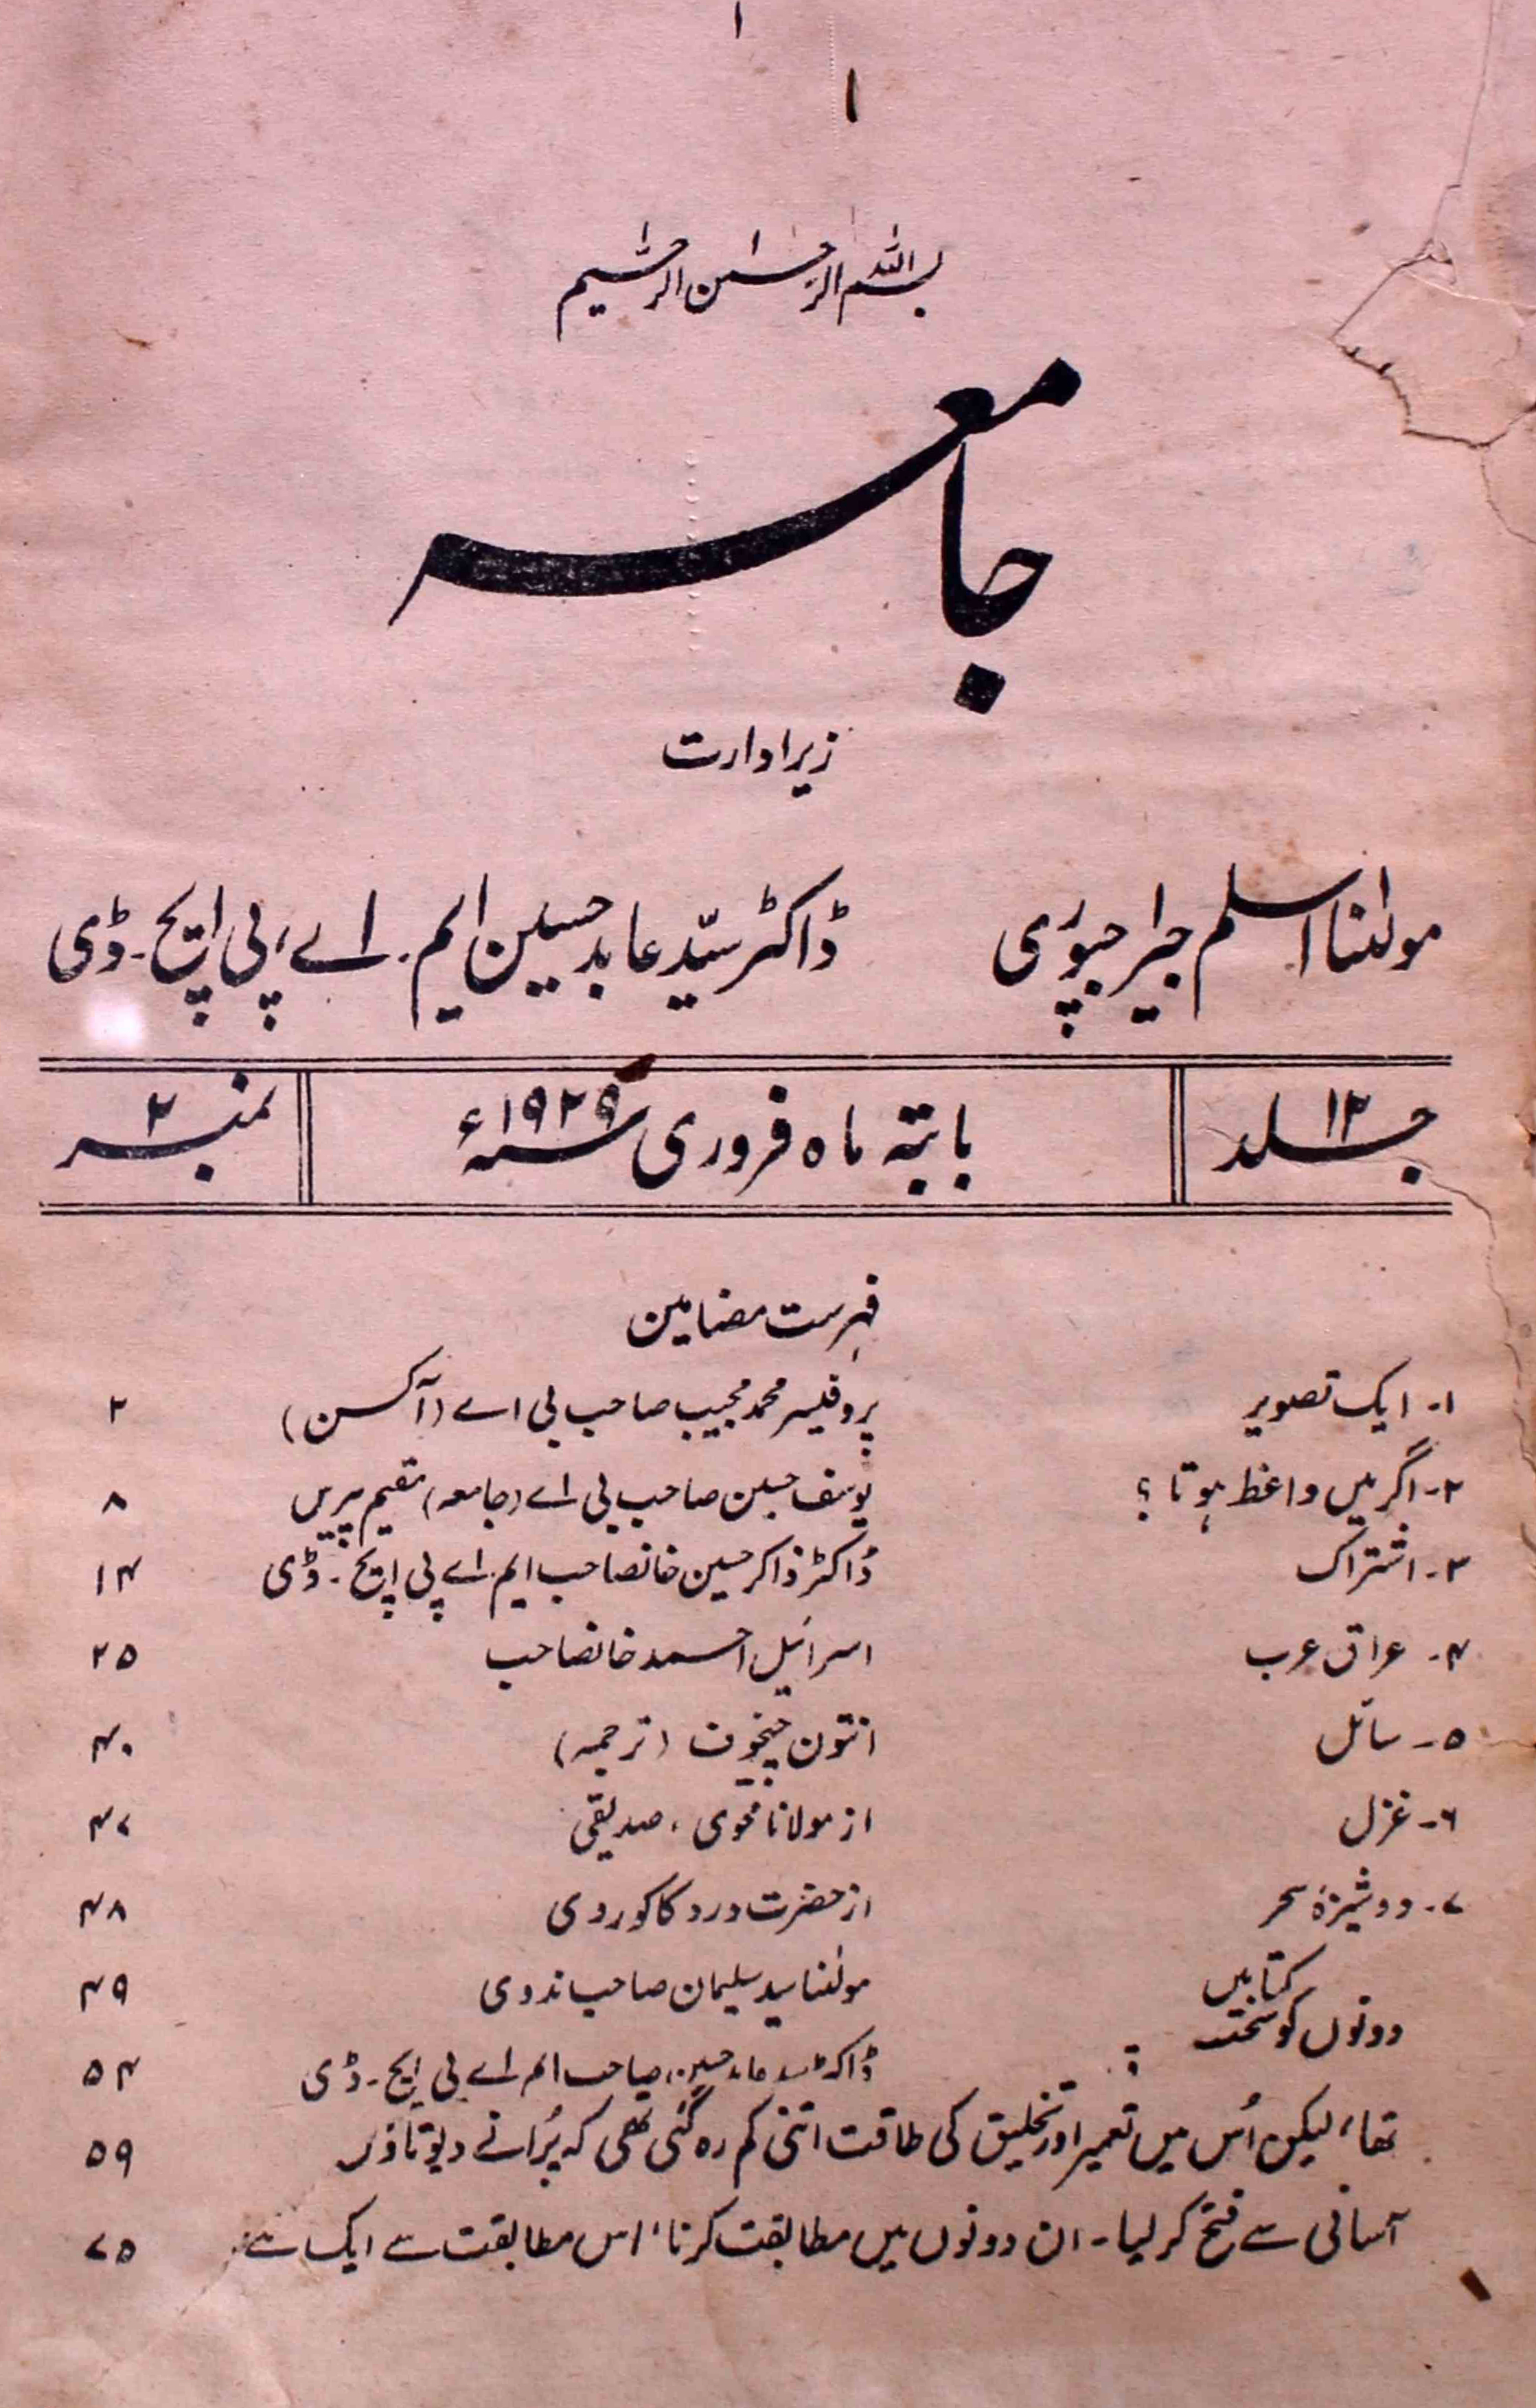 ۱
۱
بسم اللہ الرحمٰن الرحیم
جامعہ
زیر ادارت
مولٰنا اسلم جیراجپوری ڈاکٹر سیّد عابد حسین ایم۔ اے، پی ایچ۔ ڈی
جلد ۱۲ بابتہ ماہ فروری سنہ ۱۹۲۹ء نمبر ۲
فہرست مضامین
۱۔ ایک تصویر پروفیسر محمد مجیب صاحب بی اے (آکسن) ۲
۲۔ اگر میں واعظ ہوتا ؟ یوسف حسین صاحب بی اے (جامعہ) مقیم پیرس ۸
۳۔ اشتراک ڈاکٹر ذاکر حسین خانصاحب ایم۔ اے پی ایچ۔ ڈی ۱۴
۴۔ عراق عرب اسرائیل احمد خانصاحب ۲۵
۵۔ سائل انتون چیخوف (ترجمہ) ۴۰
۶۔ غزل از مولانا محوی، صدیقی ۴۷
۷۔ دوشیزۂ سحر از حضرت درد کاکوروی ۴۸
کتابیں مولٰنا سید سلیمان صاحب ندوی ۴۹
دونوں کو سخت
ڈاکٹر سید عابد حسین صاحب ایم اے پی ایچ۔ ڈی ۵۴
تھا، لیکن اُس میں تعمیر اور تخلیق کی طاقت اتنی کم رہ گئی تھی کہ پُرانے دیوتاؤں ۵۹
آسانی سے فتح کر لیا۔ ان دونوں میں مطابقت کرنا، اس مطابقت سے ایک نئے ۷۵